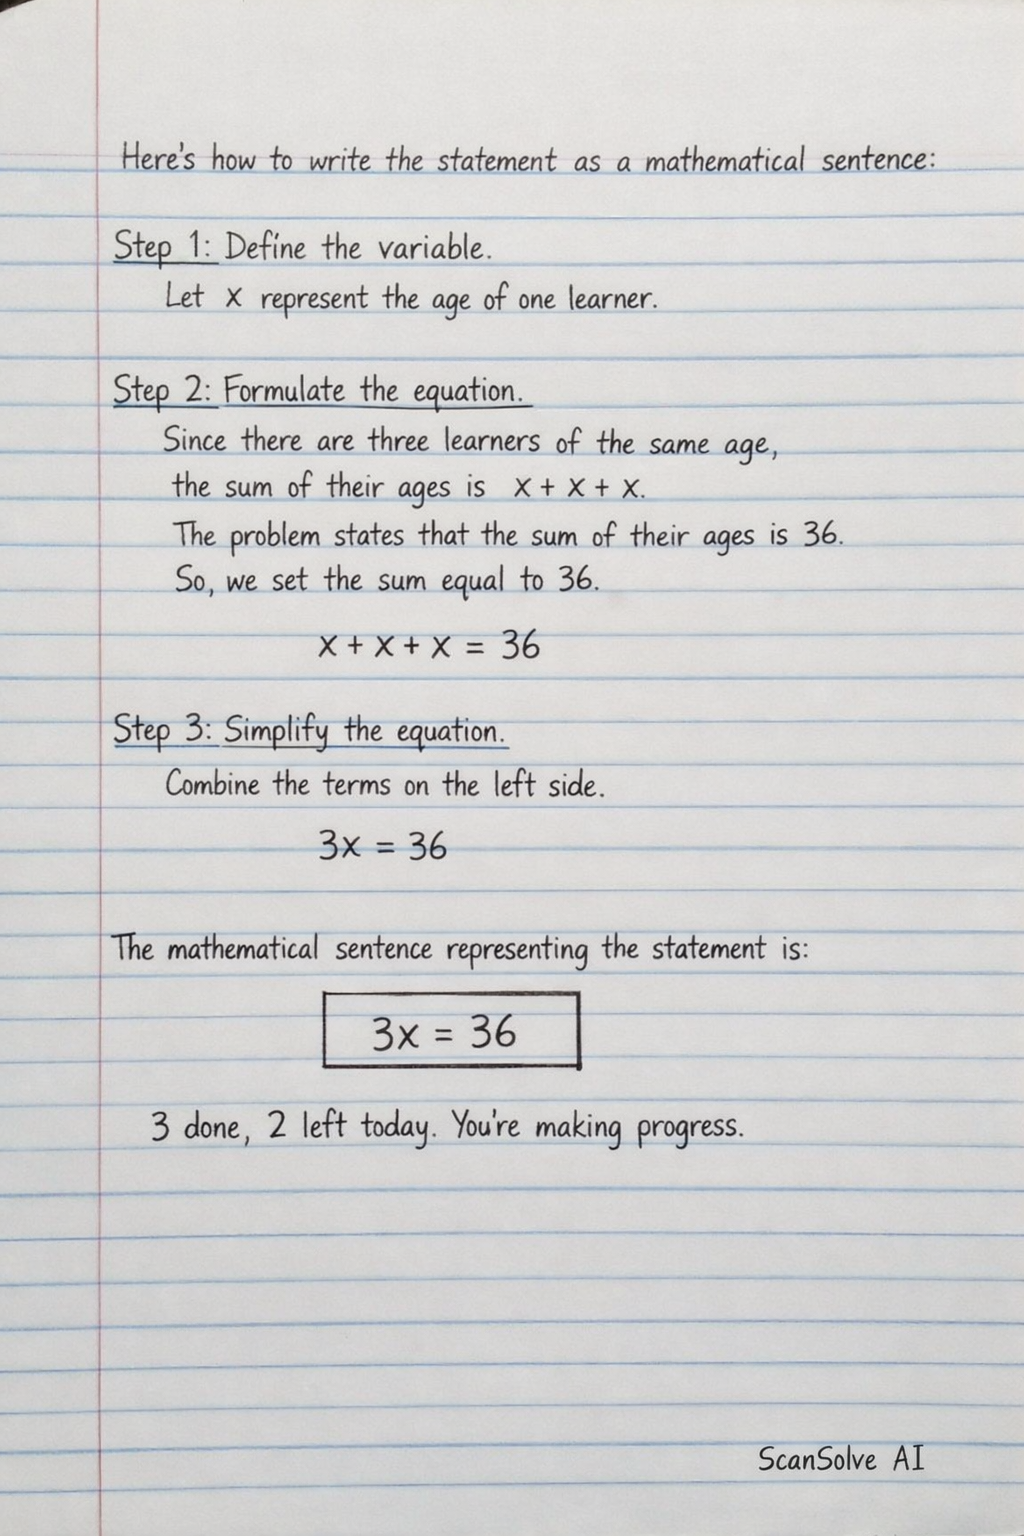 Here's how to write the statement as a mathematical sentence:
Step 1: Define the variable.
Let x represent the age of one learner.
Step 2: Formulate the equation.
Since there are three learners of the same age,
the sum of their ages is x + x + x.
The problem states that the sum of their ages is 36.
So, we set the sum equal to 36.
x + x + x = 36
Step 3: Simplify the equation.
Combine the terms on the left side.
3x = 36
The mathematical sentence representing the statement is:
3x = 36
3 done, 2 left today. You're making progress.
ScanSolve AI